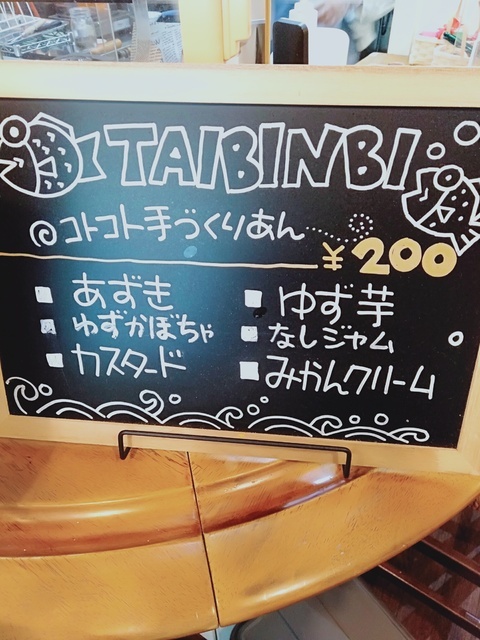 TAIBINBI
@コトコト手づくりあん……
¥200
あずき
ゆずかぼちゃ
カスタード
ゆず芋
なしジャム
みかんクリーム